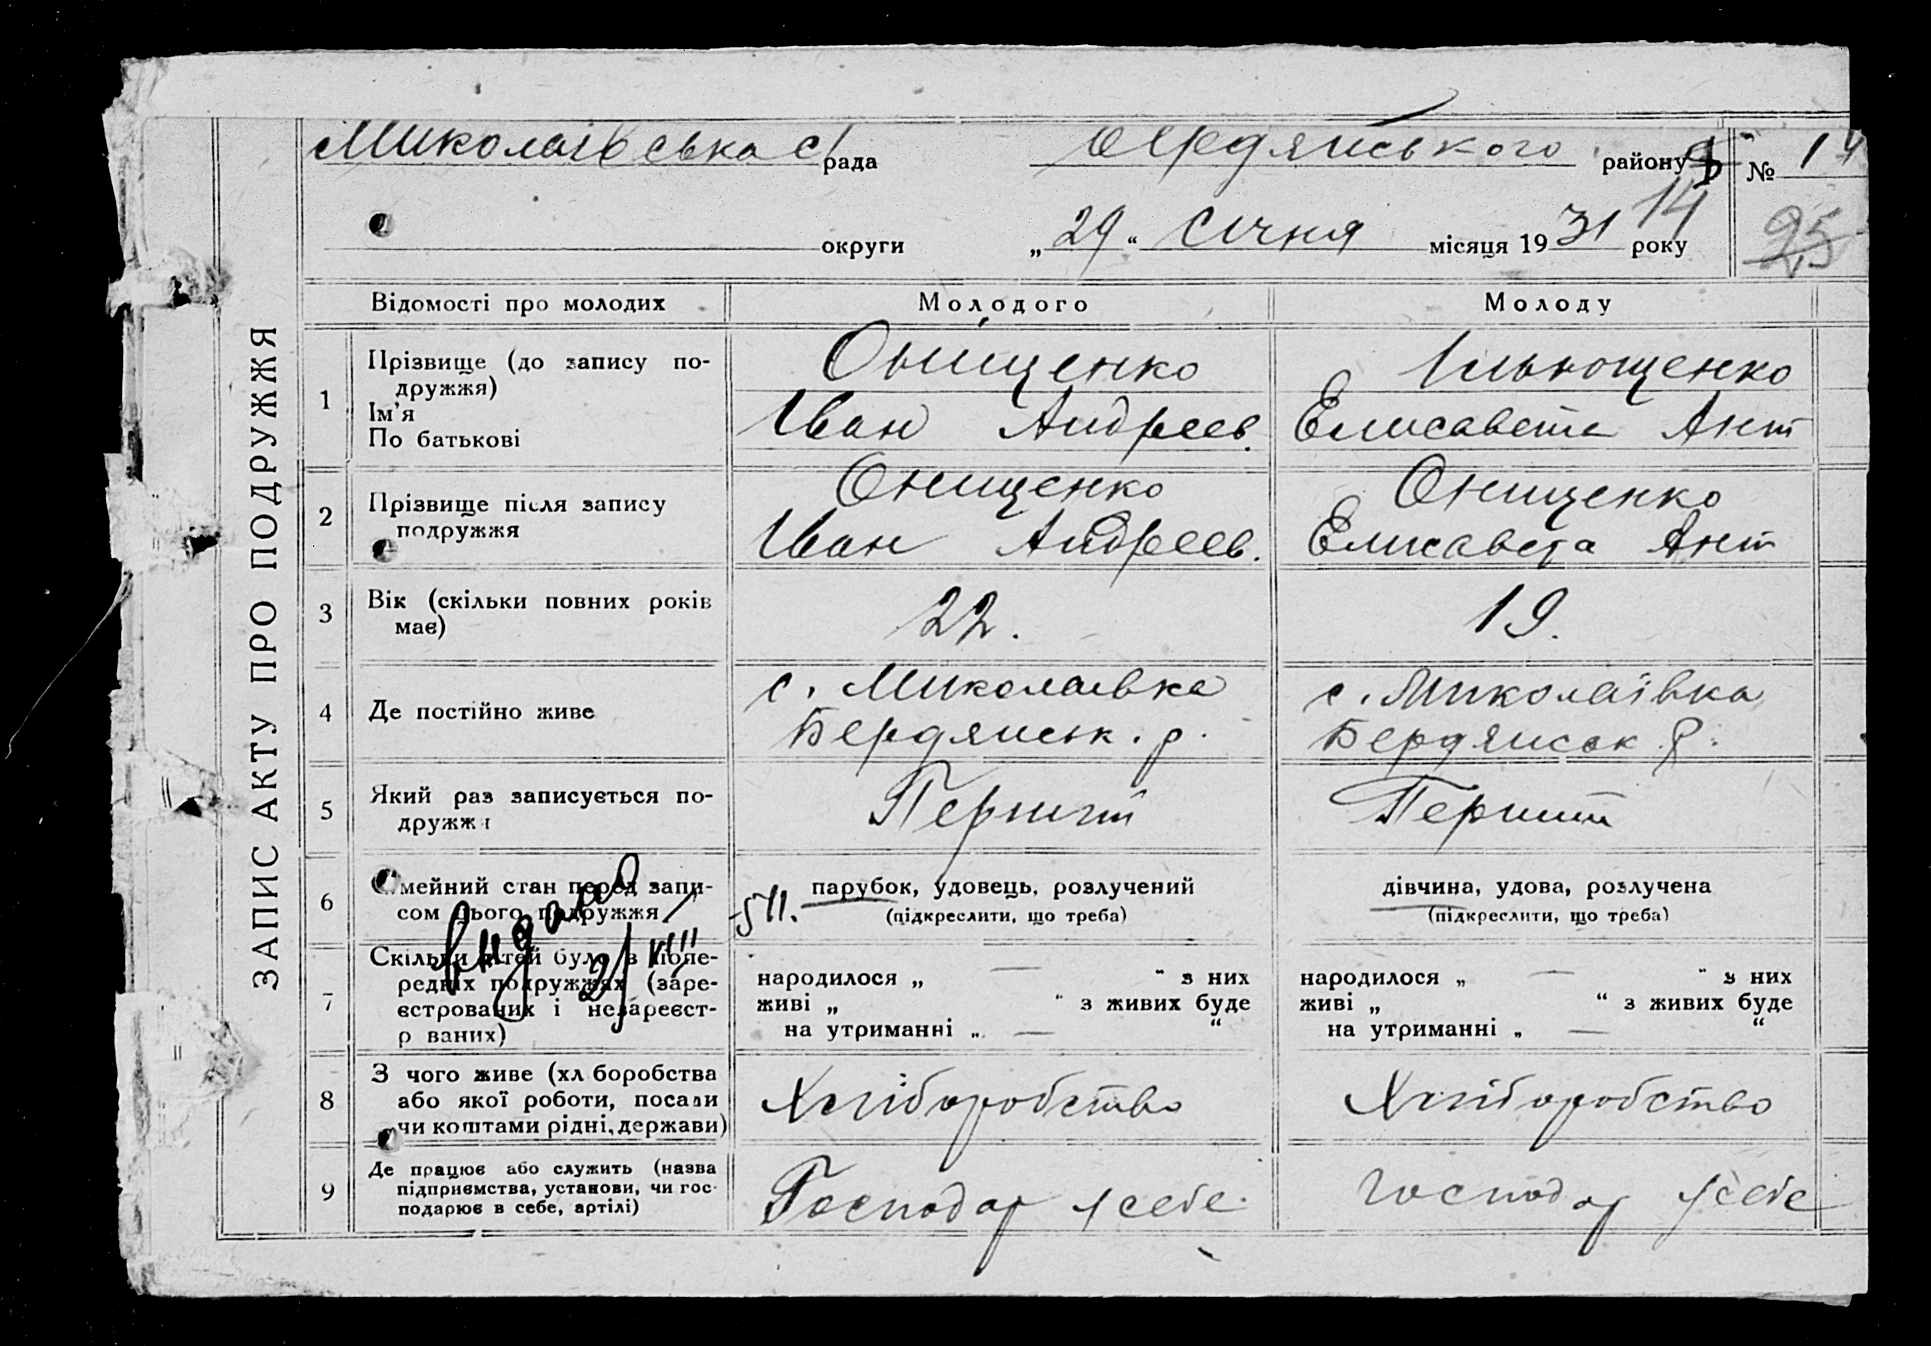 ЗАПИС АКТУ ПРО ПОДРУЖЖЯ
Миколаївська с/рада Бердянського району № 14
округи „29“ Січня місяця 1931 року
14
25
Відомості про молодих Молодого Молоду
1 Прізвище (до запису по-
дружжя)
Ім'я
По батькові
Онищенко
Іван Андреев.
Ільющенко
Елисавета Ант
2 Прізвище після запису
подружжя
Онищенко
Іван Андреев.
Онищенко
Елисавета Ант
3 Вік (скільки повних років
має)
22.
19.
4 Де постійно живе
с. Миколаевка
Бердянськ. р.
с. Миколаївка
Бердянськ. р.
5 Який раз записується по-
дружжя
Перший
Перший
6 Сімейний стан перед запи-
сом цього подружжя
парубок, удовець, розлучений
(підкреслити, що треба)
дівчина, удова, розлучена
(підкреслити, що треба)
видано
2/VIII
7 Скільки дітей було в попе-
редніх подружжях (заре-
єстрованих і незареєст-
р ваних)
народилося „ — “ з них
живі „ “ з живих буде
на утриманні „ — “
народилося „ — “ з них
живі „ “ з живих буде
на утриманні „ — “
8 З чого живе (хл боробства
або якої роботи, посади
чи коштами рідні, держави)
Хліборобство
Хліборобство
9 Де працює або служить (назва
підприємства, установи, чи гос-
подарює в себе, артілі)
Господар у себе.
Господар у себе